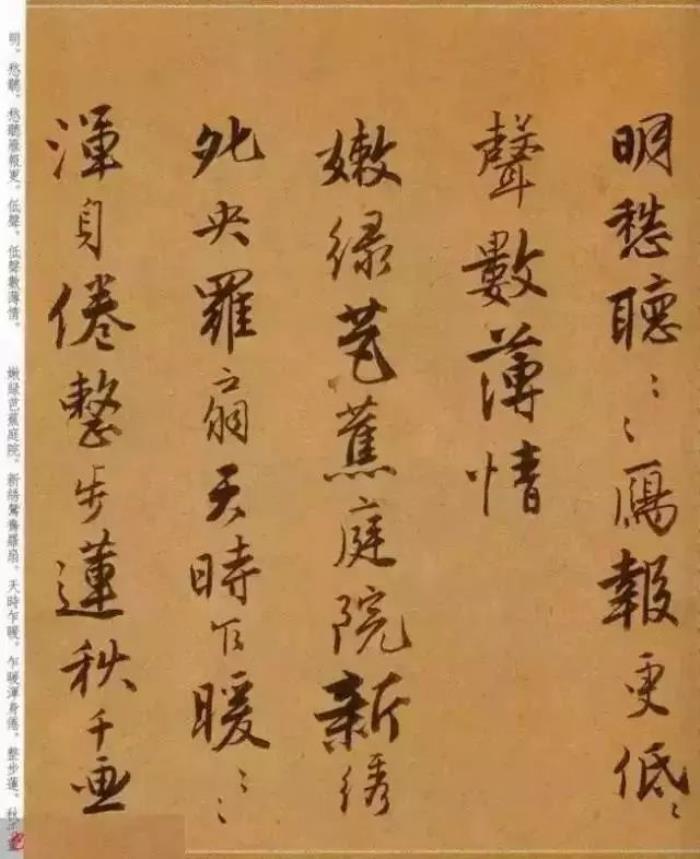 明愁聽〻〻鴈報更低〻
聲數薄情
嫩綠芭蕉庭院新綉
央羅扇天時乍暖〻〻
渾身倦整步蓮秋千画
明。愁聽。愁聽雁報更。低聲。低聲數薄情。 嫩綠芭蕉庭院。新綉鴛鴦羅扇。天時乍暖。乍暖渾身倦。整步蓮。秋千畫